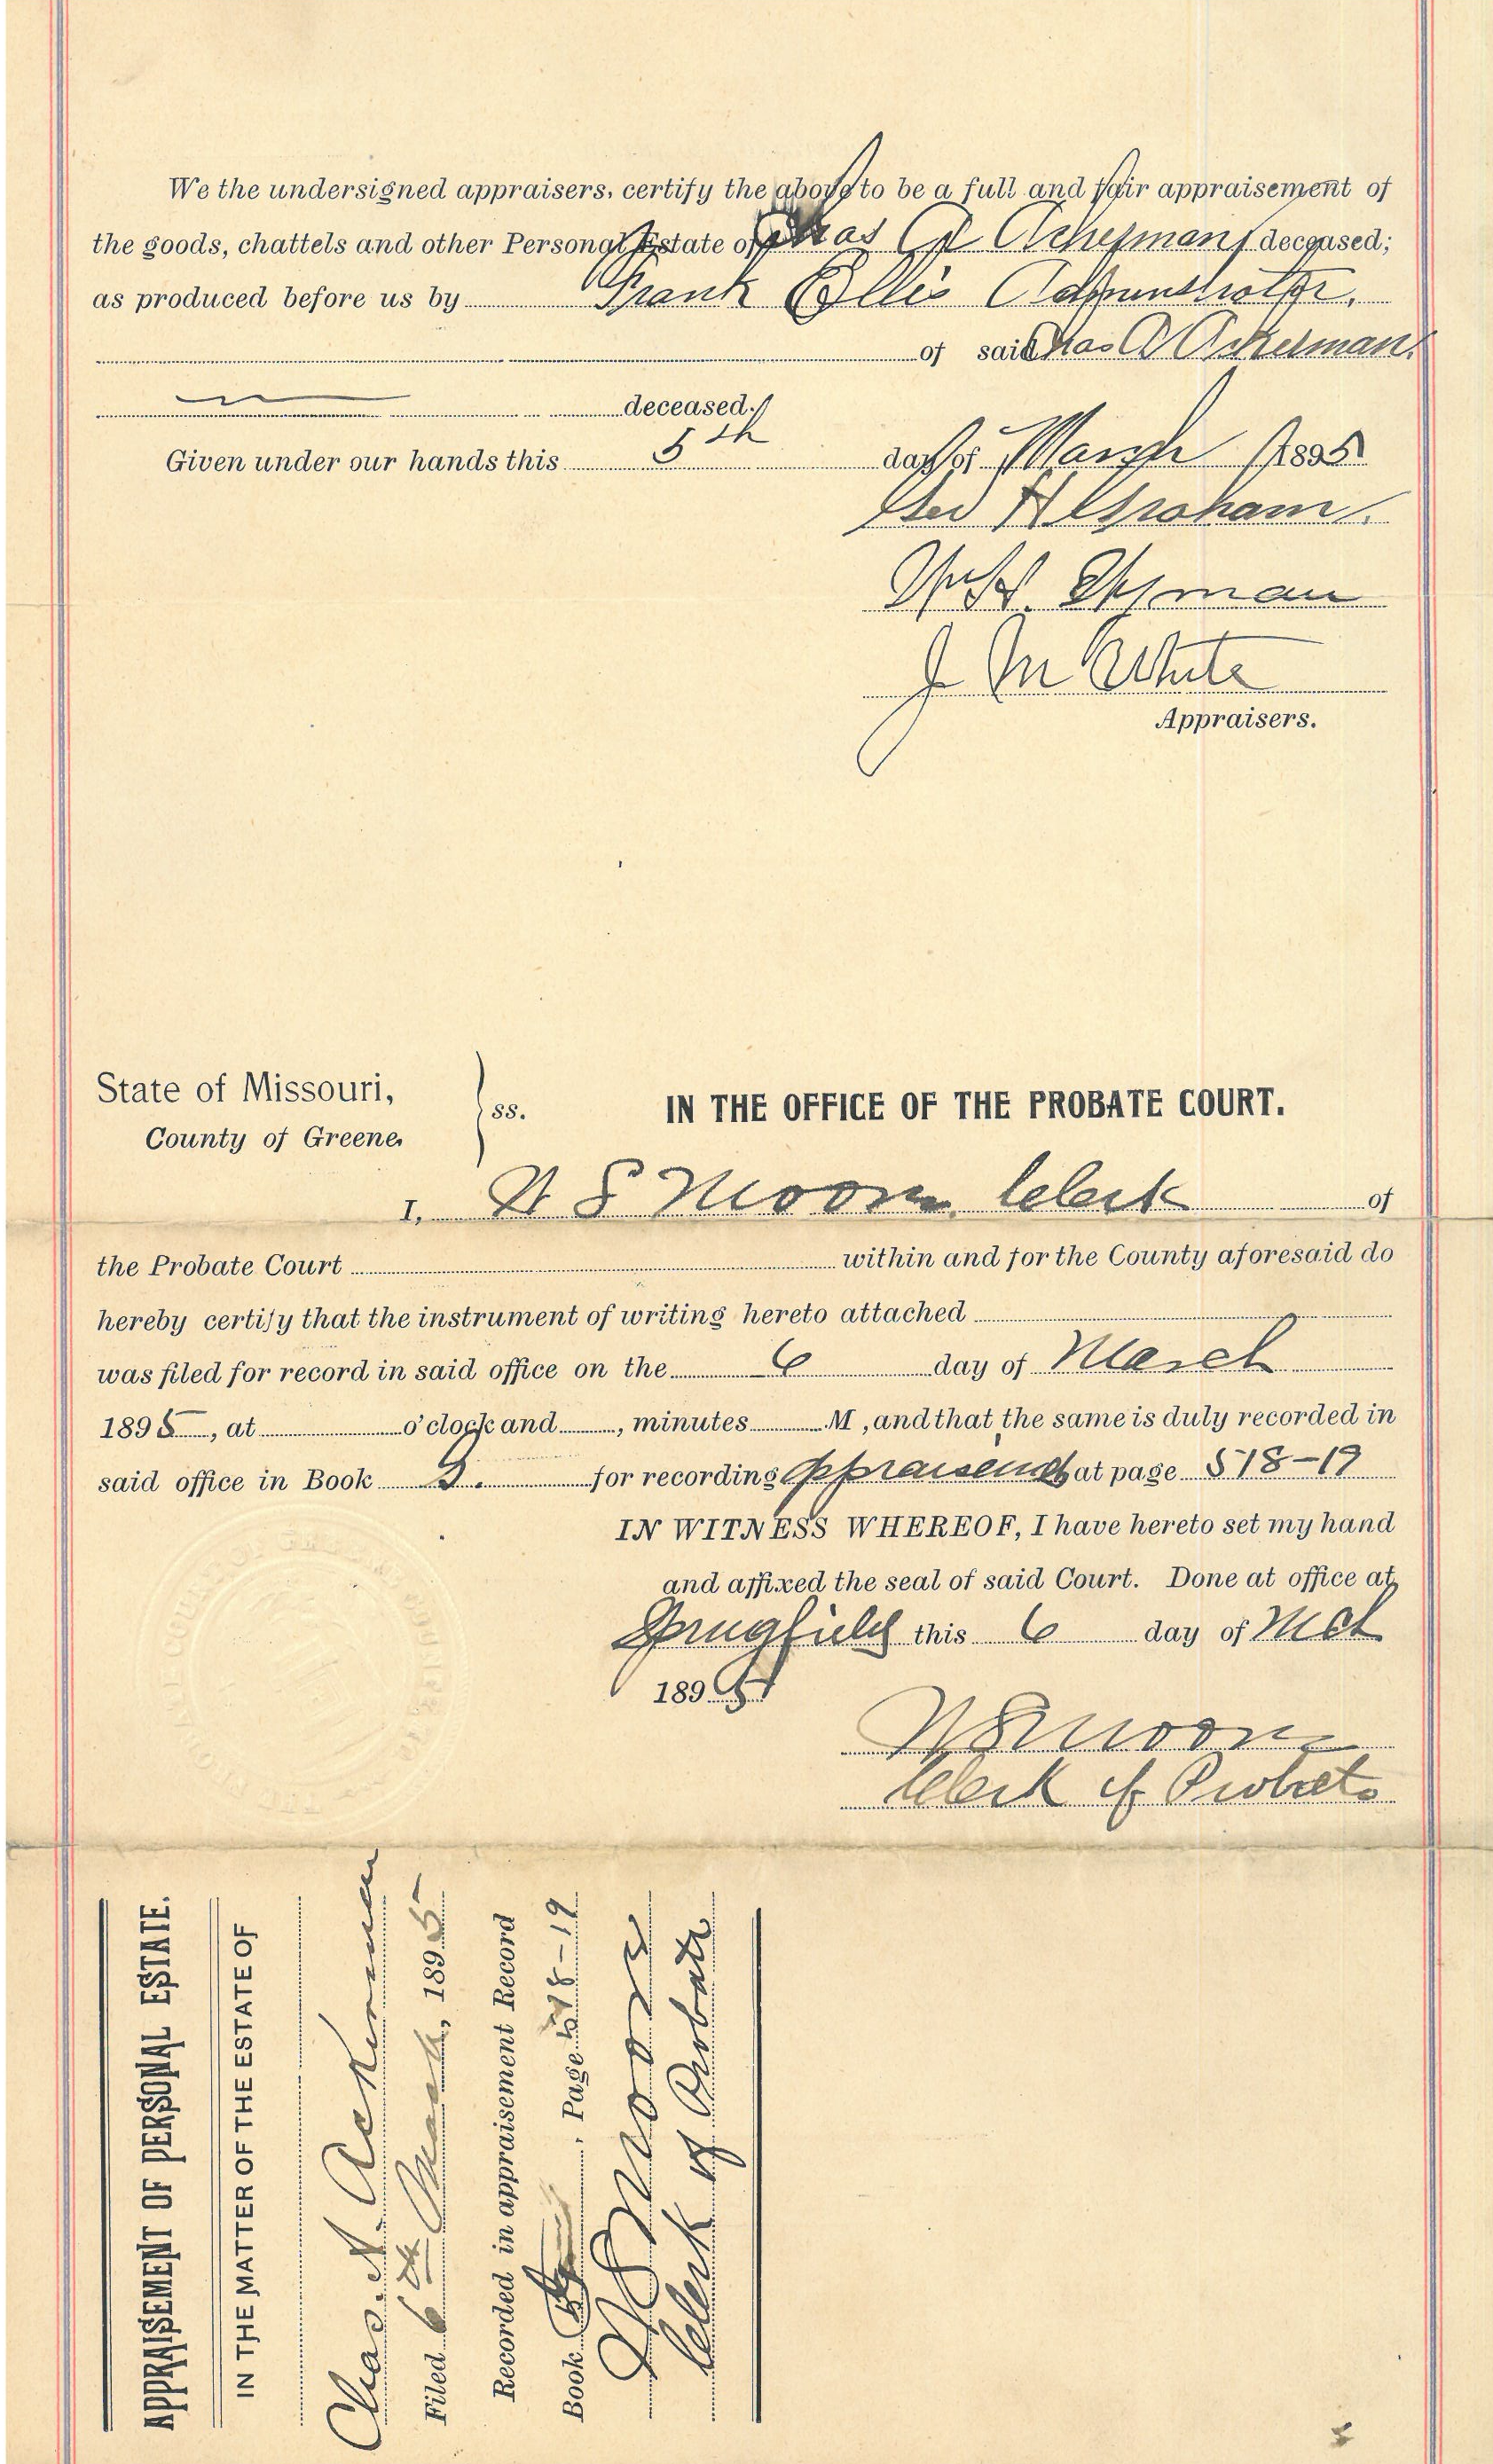 We the undersigned appraisers, certify the above to be a full and fair appraisement of
the goods, chattels and other Personal Estate of Chas A Ackerman deceased;
as produced before us by Frank Ellis Administrator.
of said Chas A Ackerman.
deceased.
Given under our hands this 5th day of March 1895
Geo H Graham.
J M White
Appraisers.
State of Missouri,
County of Greene.
ss.
IN THE OFFICE OF THE PROBATE COURT.
I, W S Moon Clerk of
the Probate Court within and for the County aforesaid do
hereby certify that the instrument of writing hereto attached
was filed for record in said office on the 6 day of March
1895, at o'clock and , minutes M, and that the same is duly recorded in
said office in Book for recording appraisement at page 518-19
IN WITNESS WHEREOF, I have hereto set my hand
and affixed the seal of said Court. Done at office at
Springfield this 6 day of Mch
1895
W S Moon
Clerk of Probate
APPRAISEMENT OF PERSONAL ESTATE.
IN THE MATTER OF THE ESTATE OF
Chas. A. Ackerman
Filed 6th March, 1895
Recorded in appraisement Record
Book , Page 518-19
W S Moon
Clerk of Probate